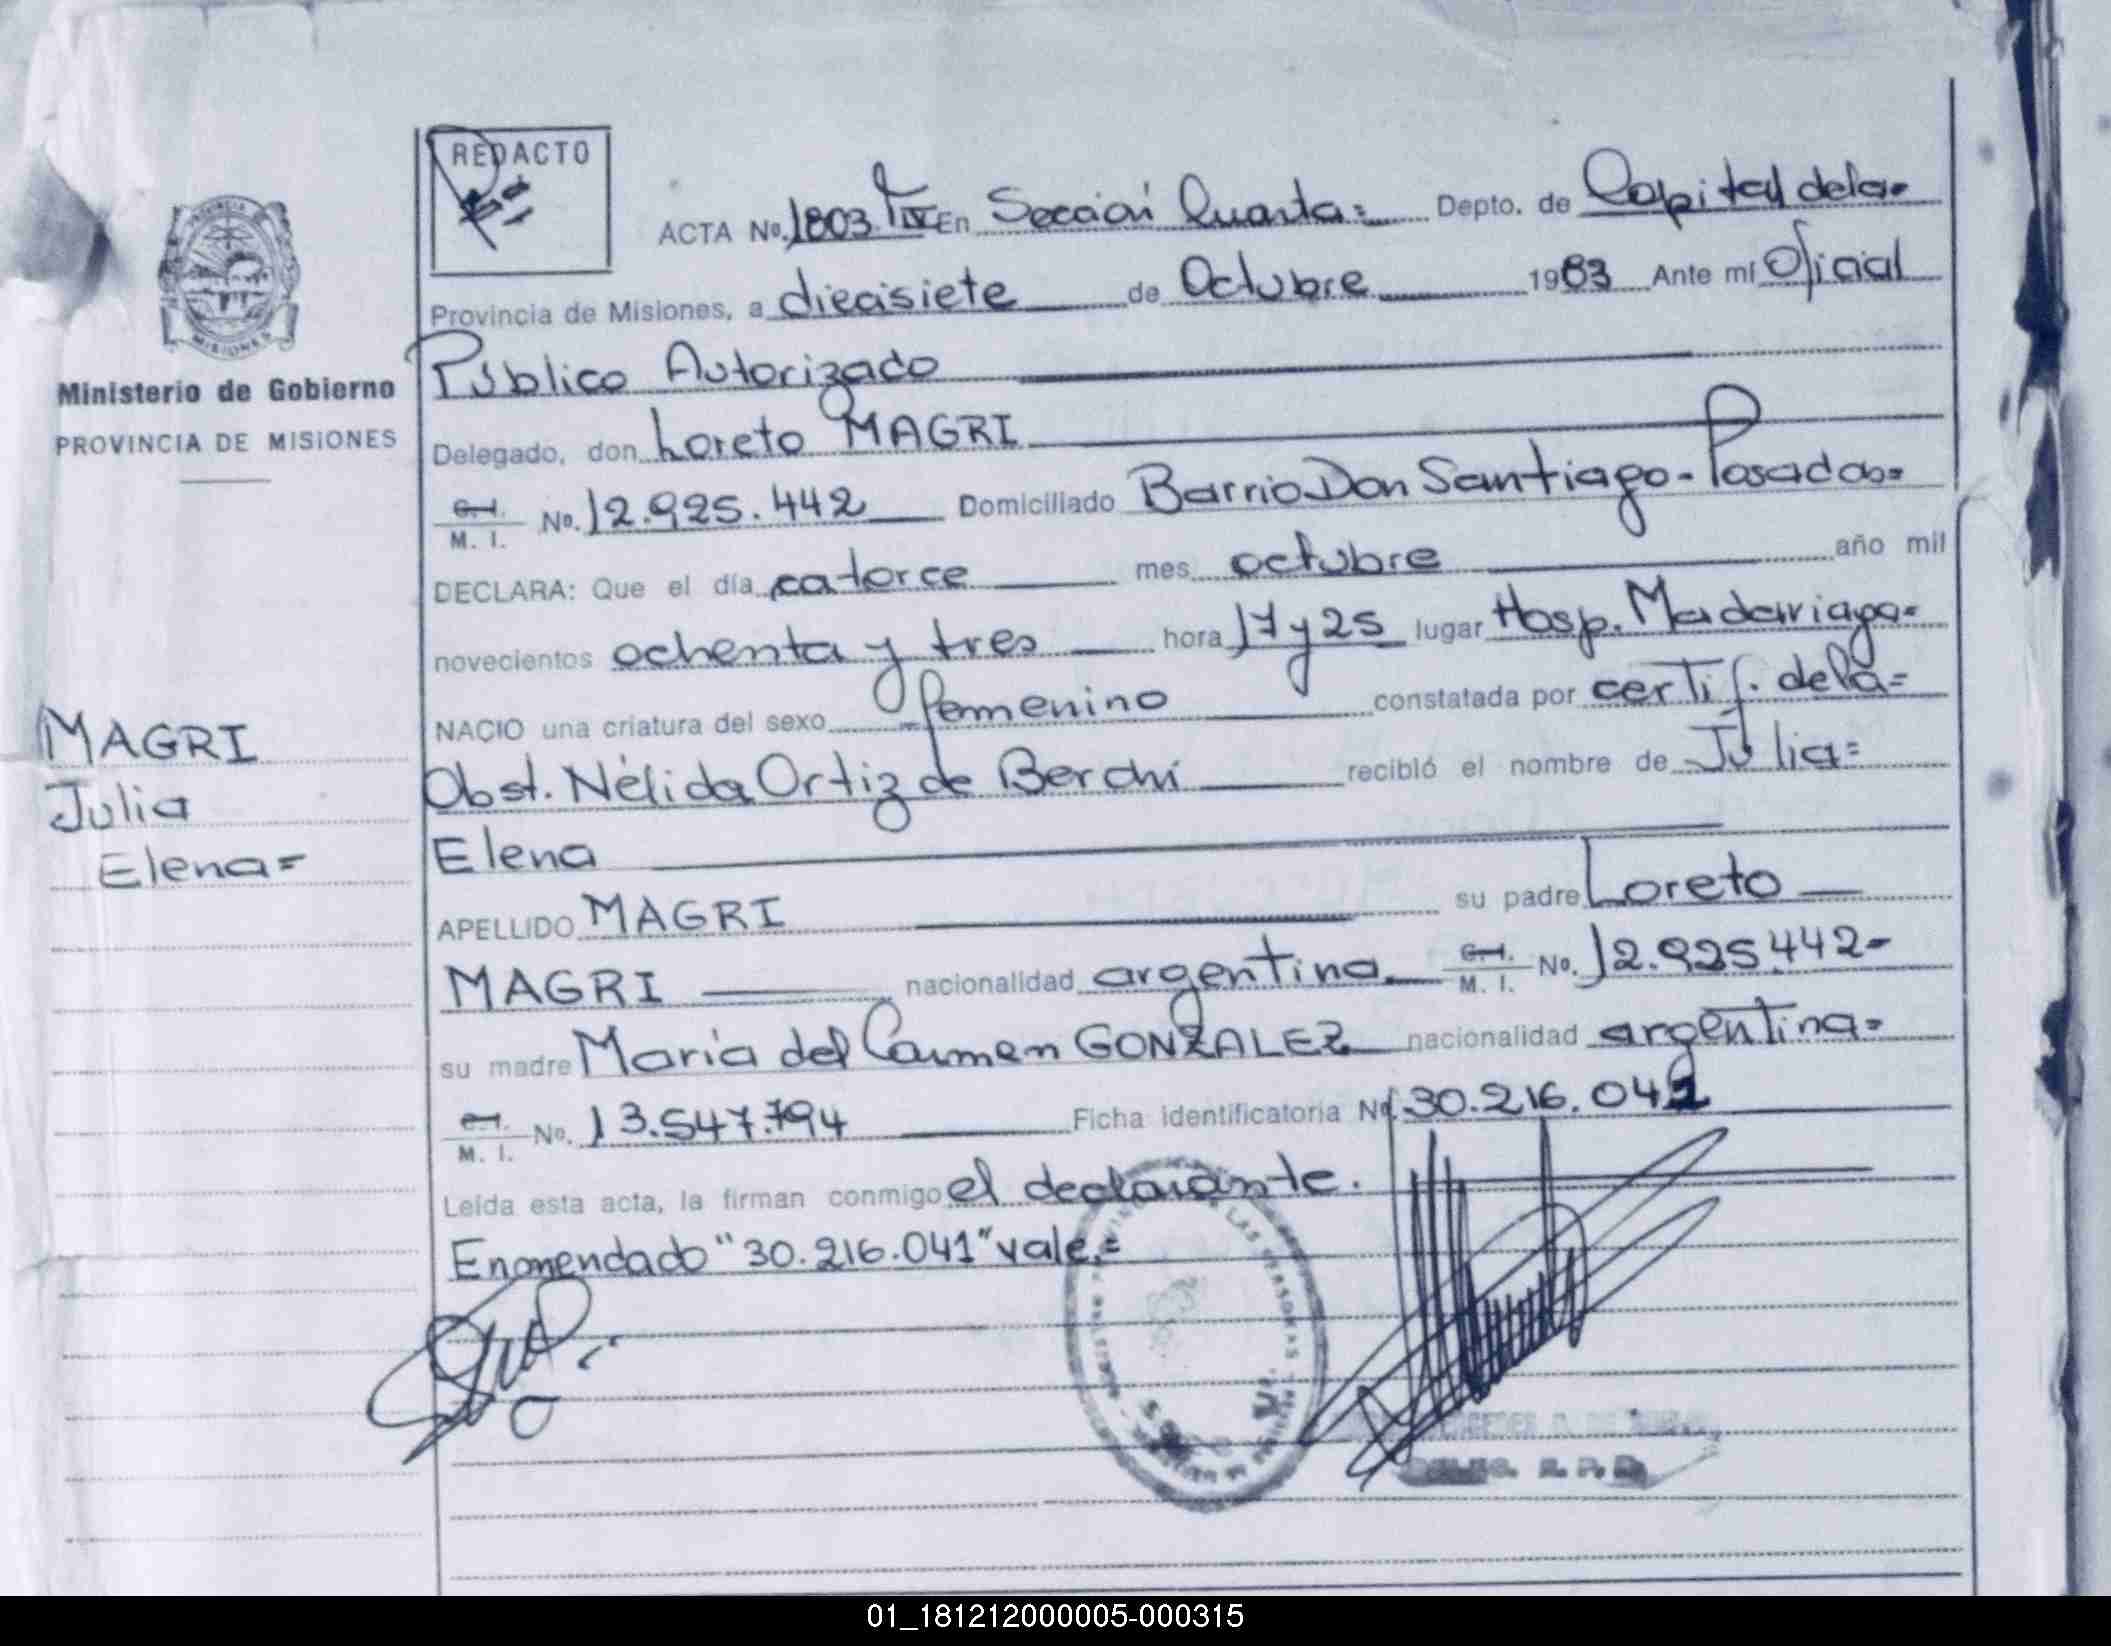 REDACTO
ACTA No. 1803 TºIV En Sección Cuarta= Depto. de Capital dela=
Provincia de Misiones, a diecisiete de Octubre 1983 Ante mí Oficial
Público Autorizado
Delegado, don Loreto MAGRI
C.I. M. I. No. 12.925.442 Domiciliado Barrio Don Santiago-Posadas=
DECLARA: Que el día catorce mes octubre año mil
novecientos ochenta y tres hora 17 y 25 lugar Hosp. Madariaga=
NACIO una criatura del sexo femenino constatada por certif. dela=
Obst. Nélida Ortiz de Berchi recibió el nombre de Julia=
Elena
APELLIDO MAGRI su padre Loreto
MAGRI nacionalidad argentina C.I. M. I. No. 12.925.442-
su madre María del Carmen GONZALEZ nacionalidad argentina=
C.I. M. I. No. 13.547.794 Ficha identificatoria Nº 30.216.041
Leída esta acta, la firman conmigo el declarante.
Enmendado "30.216.041" vale.=
PROVINCIA DE MISIONES
Ministerio de Gobierno
PROVINCIA DE MISIONES
MAGRI
Julia
Elena=
LAS PERSONAS
01_181212000005-000315